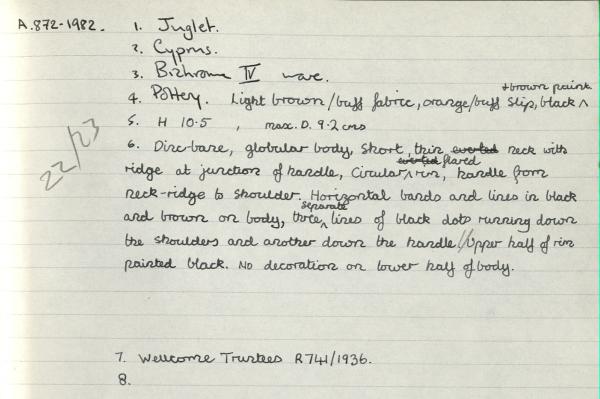 A.872-1982. 1. Juglet.
2. Cyprus.
3. Bichrome IV ware.
+ brown paint
4. Pottery. Light brown/buff fabric, orange/buff slip, black ^
5. H 10.5 , max. D. 9.2 cms
22/23
6. Disc-base, globular body, short, thin everted neck with
everted flared
ridge at junction of handle, circular ^ rim, handle from
neck-ridge to shoulder. Horizontal bands and lines in black
separate
and brown on body, three ^ lines of black dots running down
the shoulders and another down the handle // Upper half of rim
painted black. No decoration on lower half of body.
7. Wellcome Trustees R741/1936.
8.